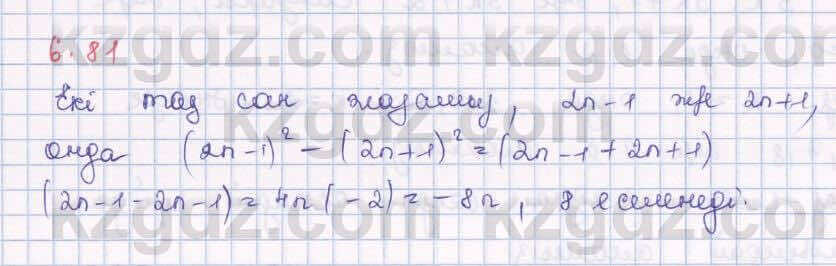 6.81
Екі тақ сан жазамыз, 2n-1 және 2n+1,
онда (2n-1)² - (2n+1)² = (2n-1+2n+1)
(2n-1-2n-1) = 4n(-2) = -8n, 8 еселенеді.
kzgdz.com kzgdz.com
kzgdz.com kzgdz.com
kzgdz.com kzgdz.com